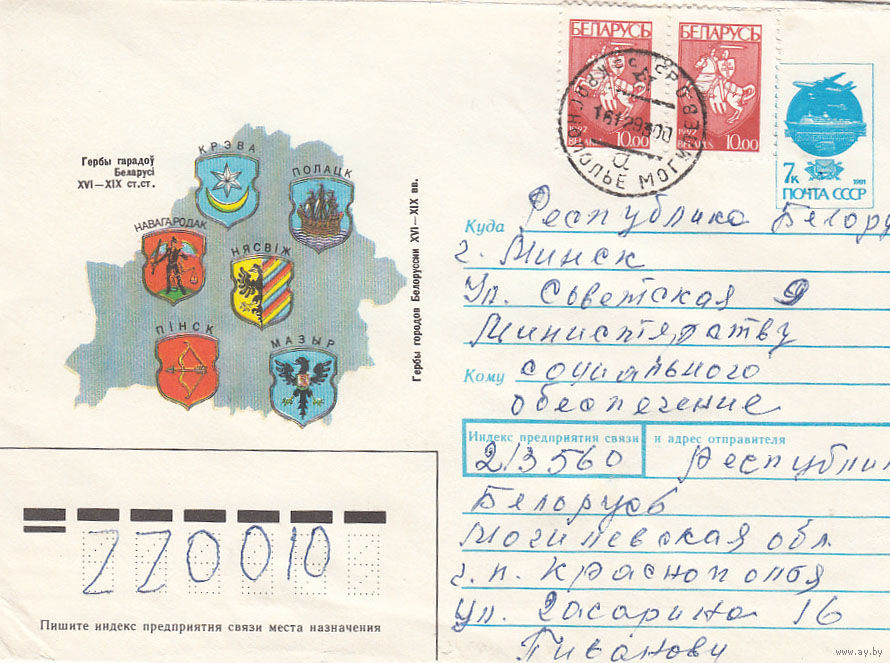 Гербы гарадоў
Беларусі
XVI—XIX ст.ст.
КРЭВА
ПОЛАЦК
НАВАГАРОДАК
НЯСВІЖ
ПІНСК
МАЗЫР
Гербы городов Белоруссии XVI—XIX вв.
БЕЛАРУСЬ
1992
BELARUS
10.00
БЕЛАРУСЬ
1992
BELARUS
10.00
7к
1991
ПОЧТА СССР
Куда Республика Белору
г. Минск
Ул. Советская 9
Министяратву
Кому социального
обеспечение
Индекс предприятия связи и адрес отправителя
213560 Республик
Белорусь
Могилевская обл
г.п. Краснополья
ул. Гагарина 16
220010
Пишите индекс предприятия связи места назначения
www.ay.by